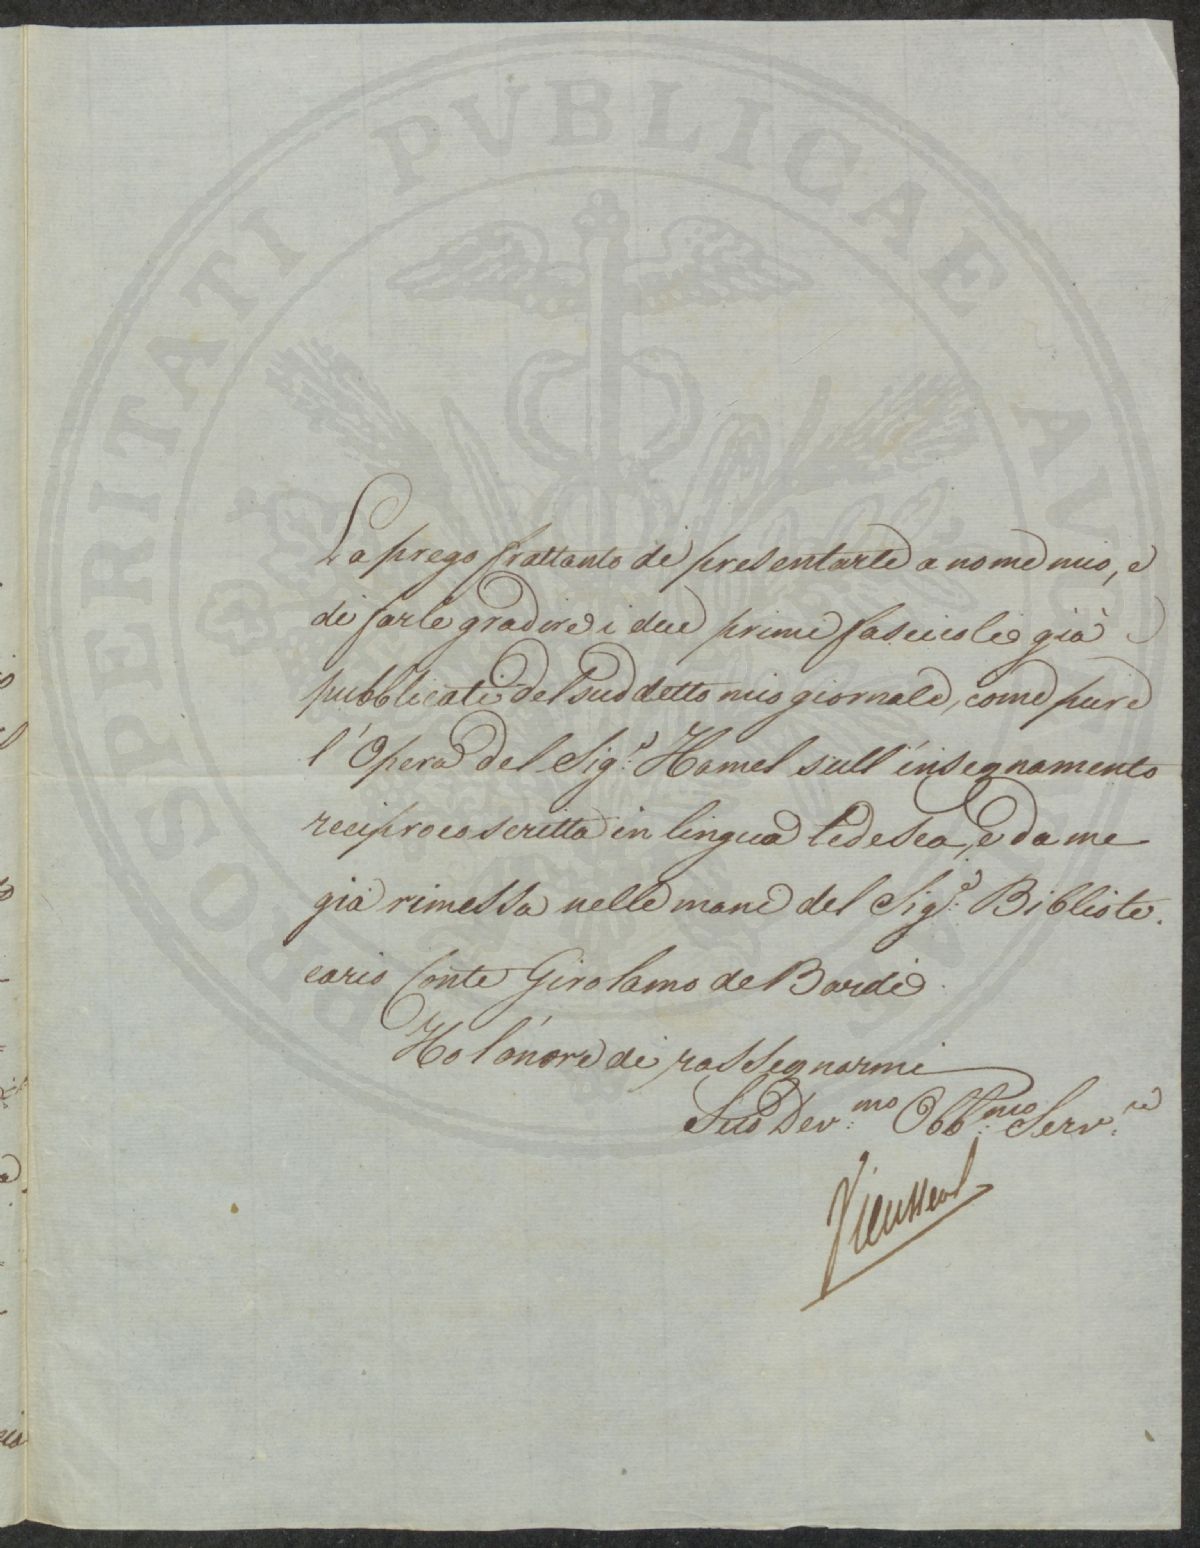 PROSPERITATI PVBLICAE AVGENDAE
La prego frattanto di presentarle a nome mio, e
di farle gradire i due primi fascicoli già
pubblicati del suddetto mio giornale, come pure
l'Opera del Sig.r Hamel sull'insegnamento
reciproco scritta in lingua tedesca, e da me
già rimessa nelle mani del Sig.r Bibliote.
cario Conte Girolamo de Bardi.
Ho l'onore di rassegnarmi
Suo Dev.mo Obb.mo Serv.re
Vieusseux